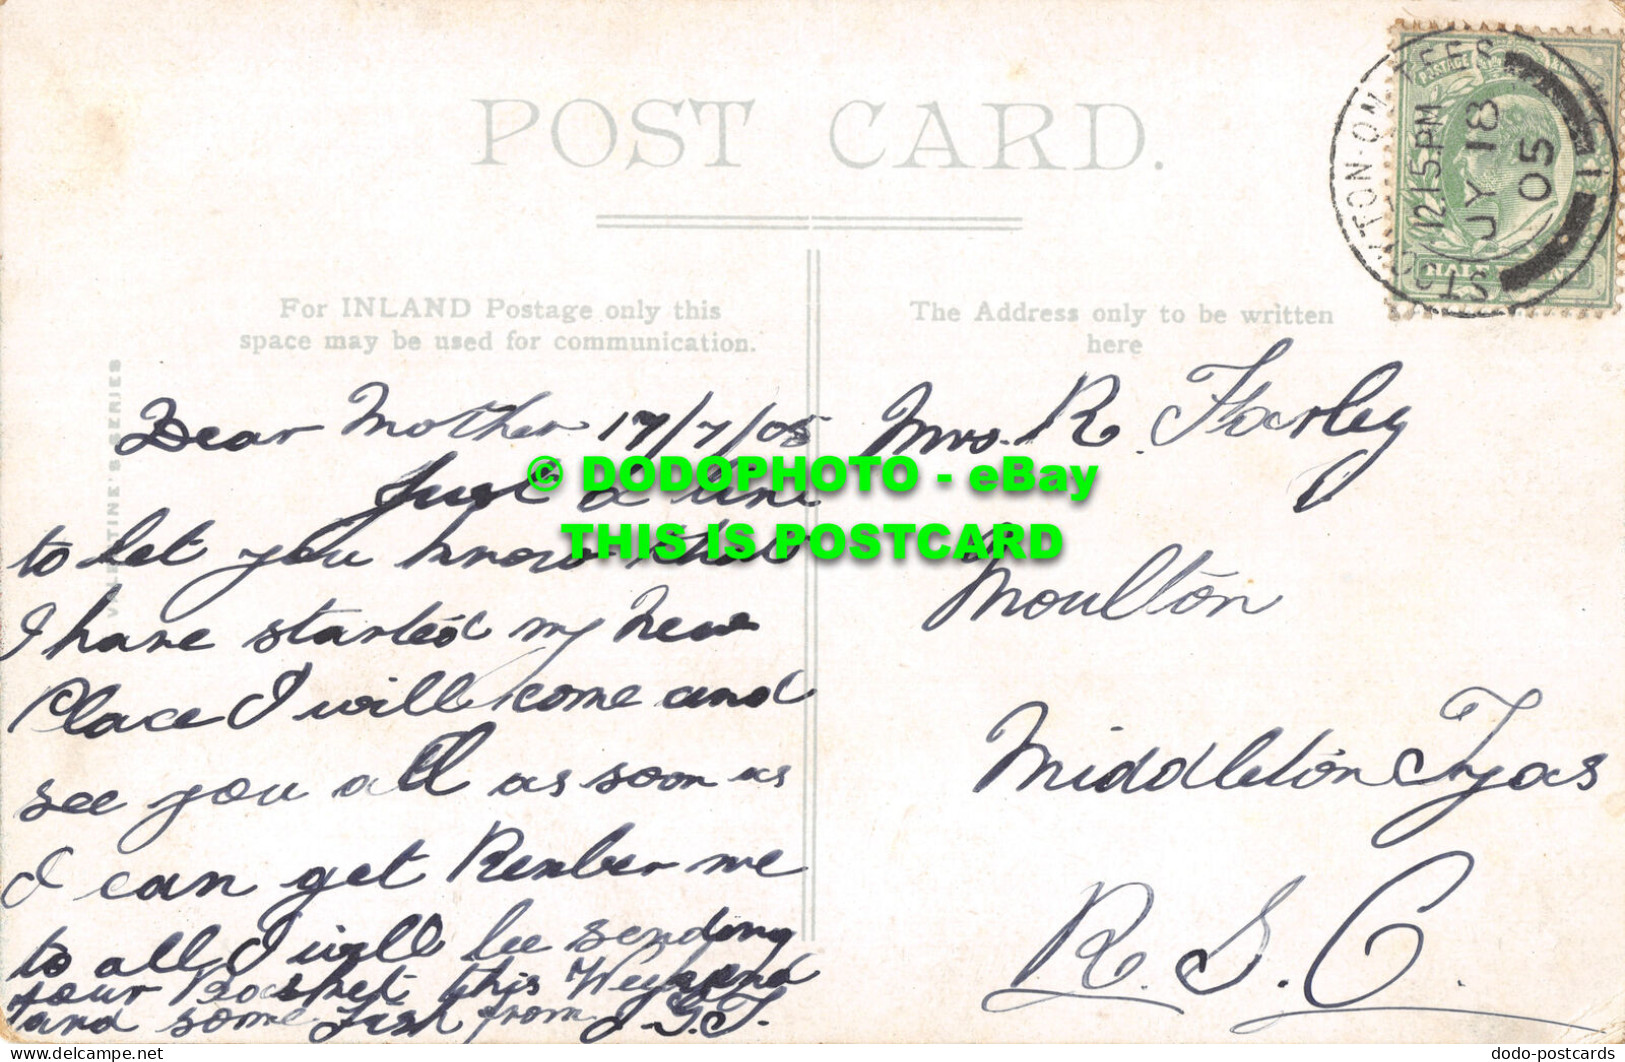 POST CARD.
For INLAND Postage only this
space may be used for communication.
The Address only to be written
here
VALENTINE'S SERIES
STOCKTON-ON-TEES
12.15 PM
JY 18
05
POSTAGE
Dear Mother 17/7/05
Just a line
to let you know that
I have started my new
Place I will come and
see you all as soon as
I can get Rember me
to all I will be sending
your Basket this Weekend
and some Fish from
Mrs. R
Moulton
Middleton Tyas
R. S. O.
© DODOPHOTO - eBay
THIS IS POSTCARD
dodo-postcards